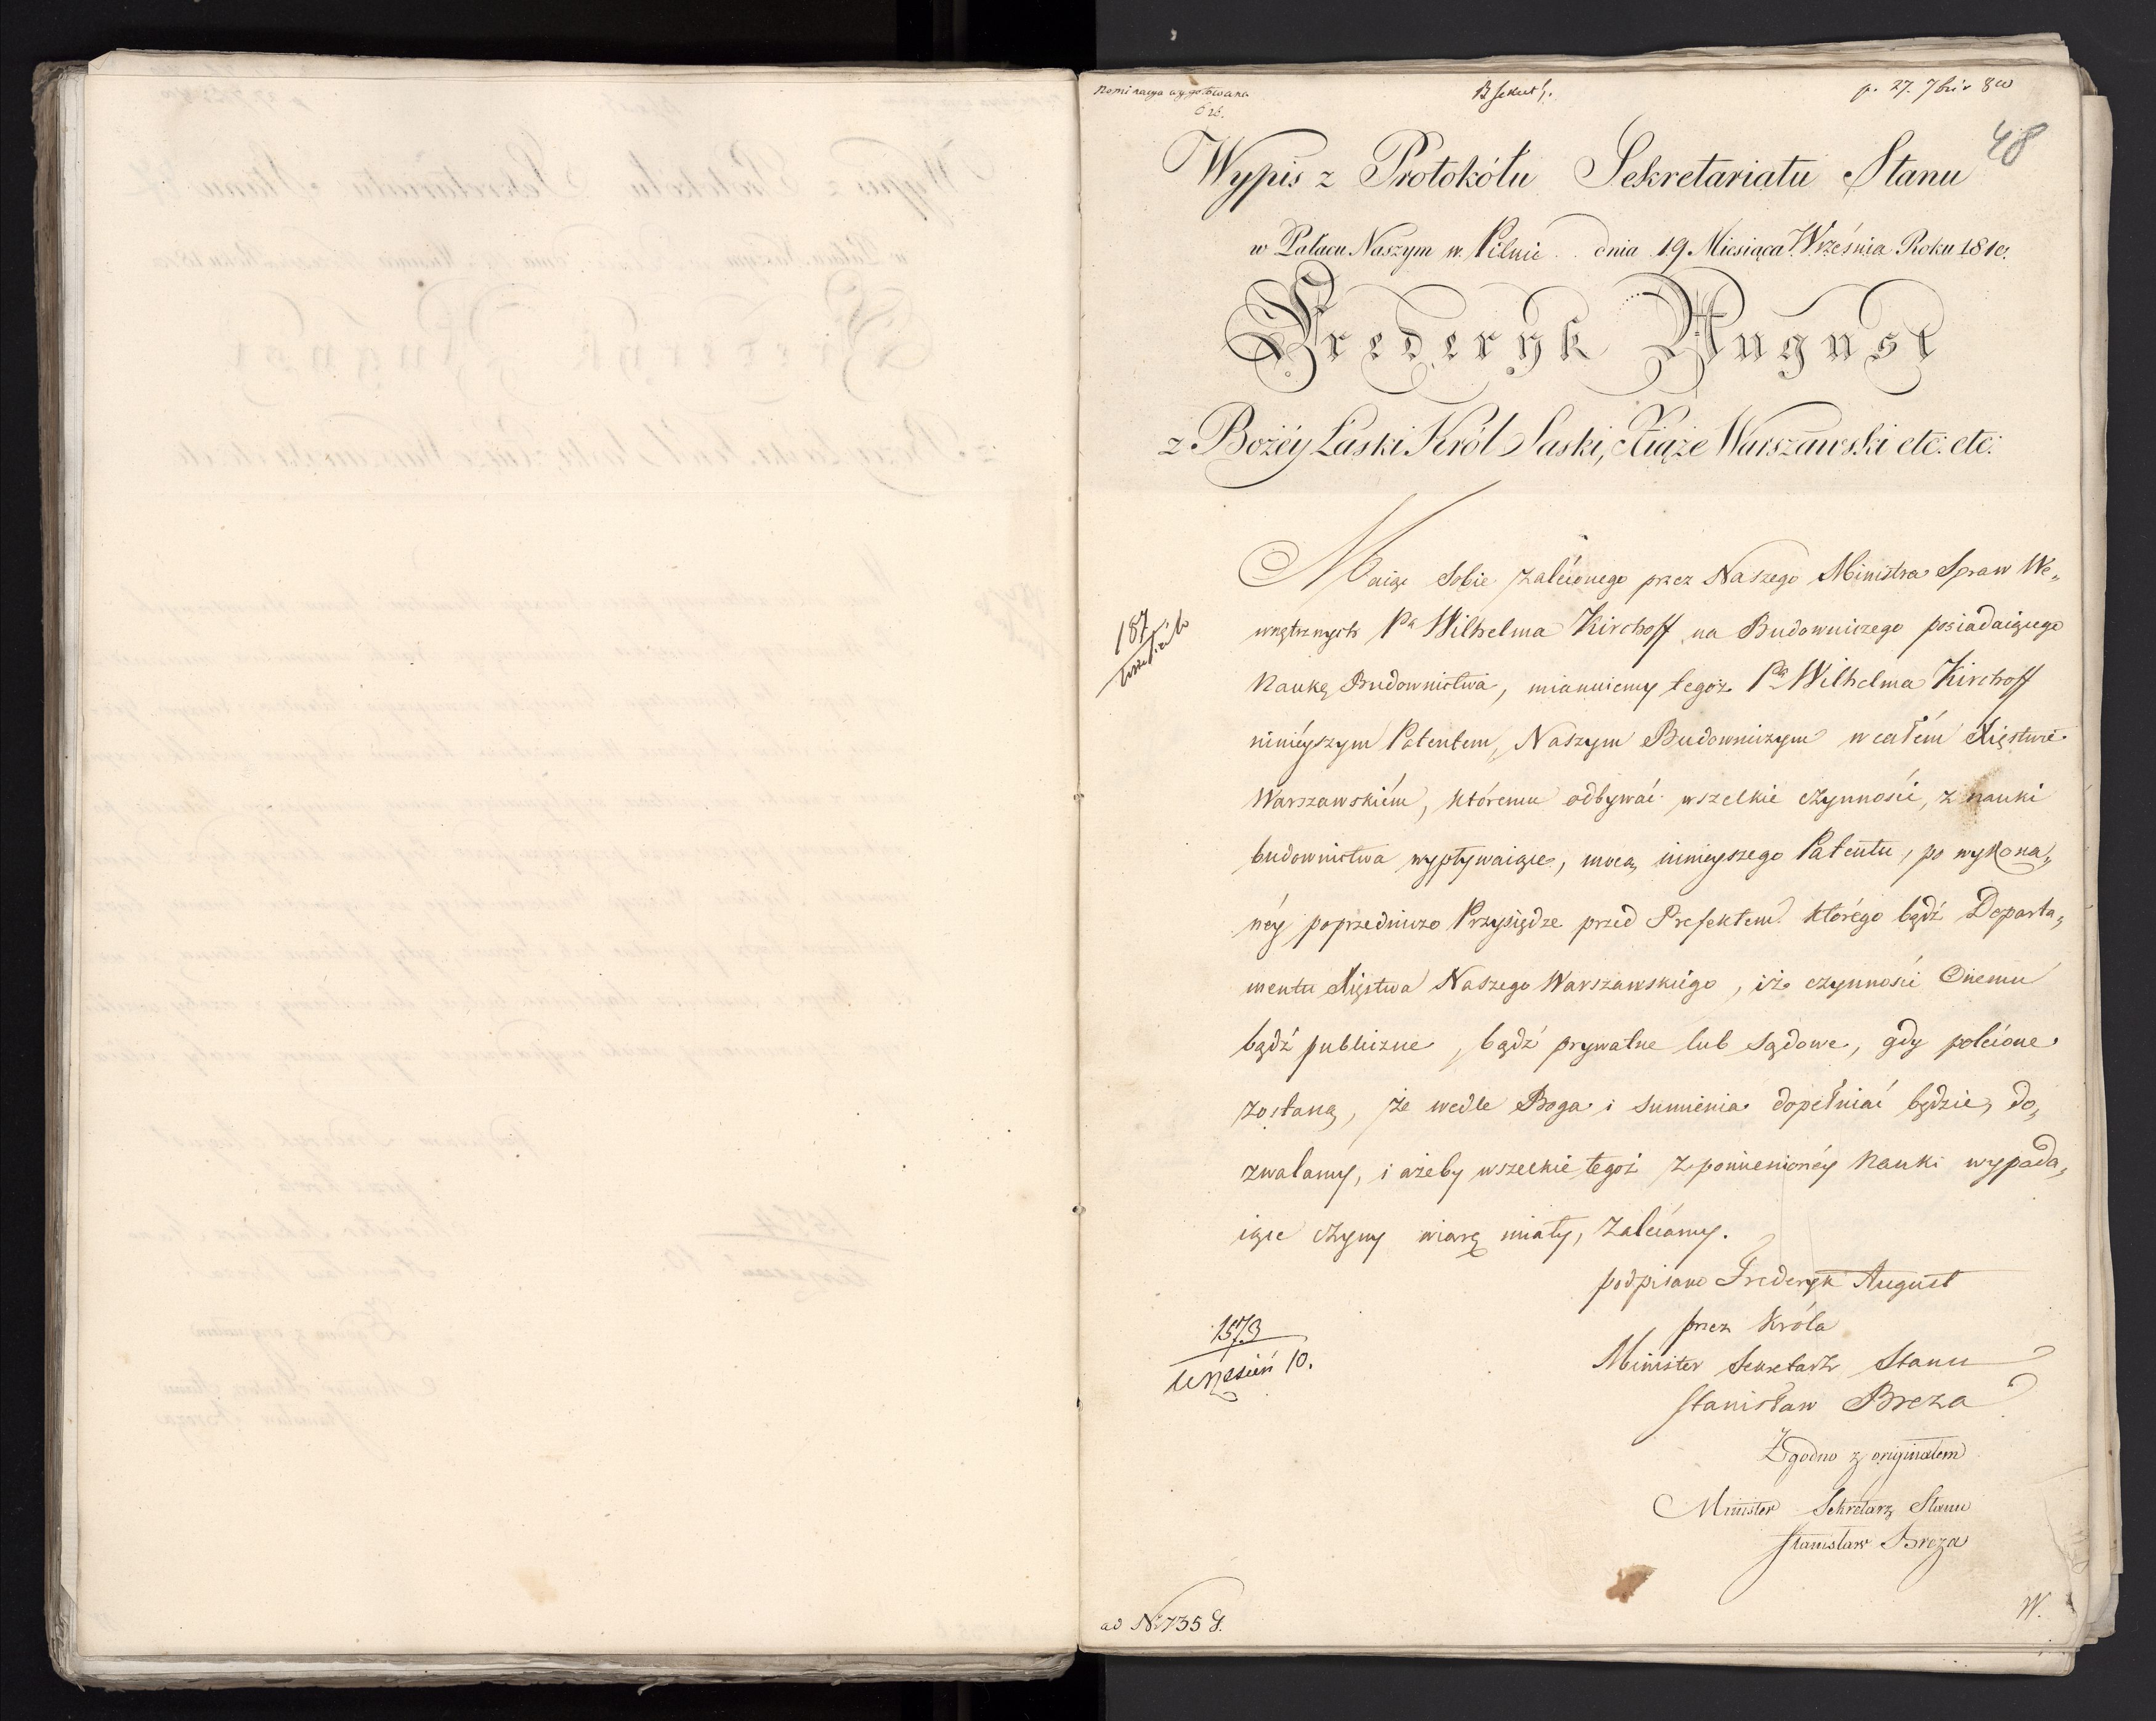 Nominacya wygotowana
p. 27. 7bris 8co
48
Wypis z Protokółu Sekretariatu Stanu
w Pałacu Naszym w Pilnic dnia 19 Miesiąca Września Roku 1810.
Fryderyk August
z Bożéy Łaski Król Saski, Xiąże Warszawski etc: etc:
Maiąc Sobie zaleconego przez Naszego Ministra Spraw We„
wnętrznych Pa Wilhelma Kirchoff na Budowniczego posiadaiącego
Naukę Budownictwa, mianuiemy tegoż Pa Wilhelma Kirchoff
ninieyszym Patentem, Naszym Budowniczym w całém Xięstwie
Warszawskiém, któremu odbywać wszelkie czynności, z nauki
budownictwa wypływaiące, mocą ninieyszego Patentu, po wykona„
néy poprzedniczo Przysiędze przed Prefektem którego bądź Departa„
mentu Xięstwa Naszego Warszawskiego, iż czynności Onemu
bądź publiczne, bądź prywatne lub Sądowe, gdy polecone
zostaną, że wedle Boga i Sumienia dopełniać będzie, do„
zwalamy, i ażeby wszelkie tegoż z pomienionéy Nauki wypada„
iące czyny wiarę miały, zalecamy.
187
Wrzesień
podpisano Frederyk August
przez Króla
Minister Sekretarz Stanu
Stanisław Breza
1573
Wrzesień 10.
Zgodno z originałem
Minister Sekretarz Stanu
Stanisław Breza
ad Nr 735 G.
W.